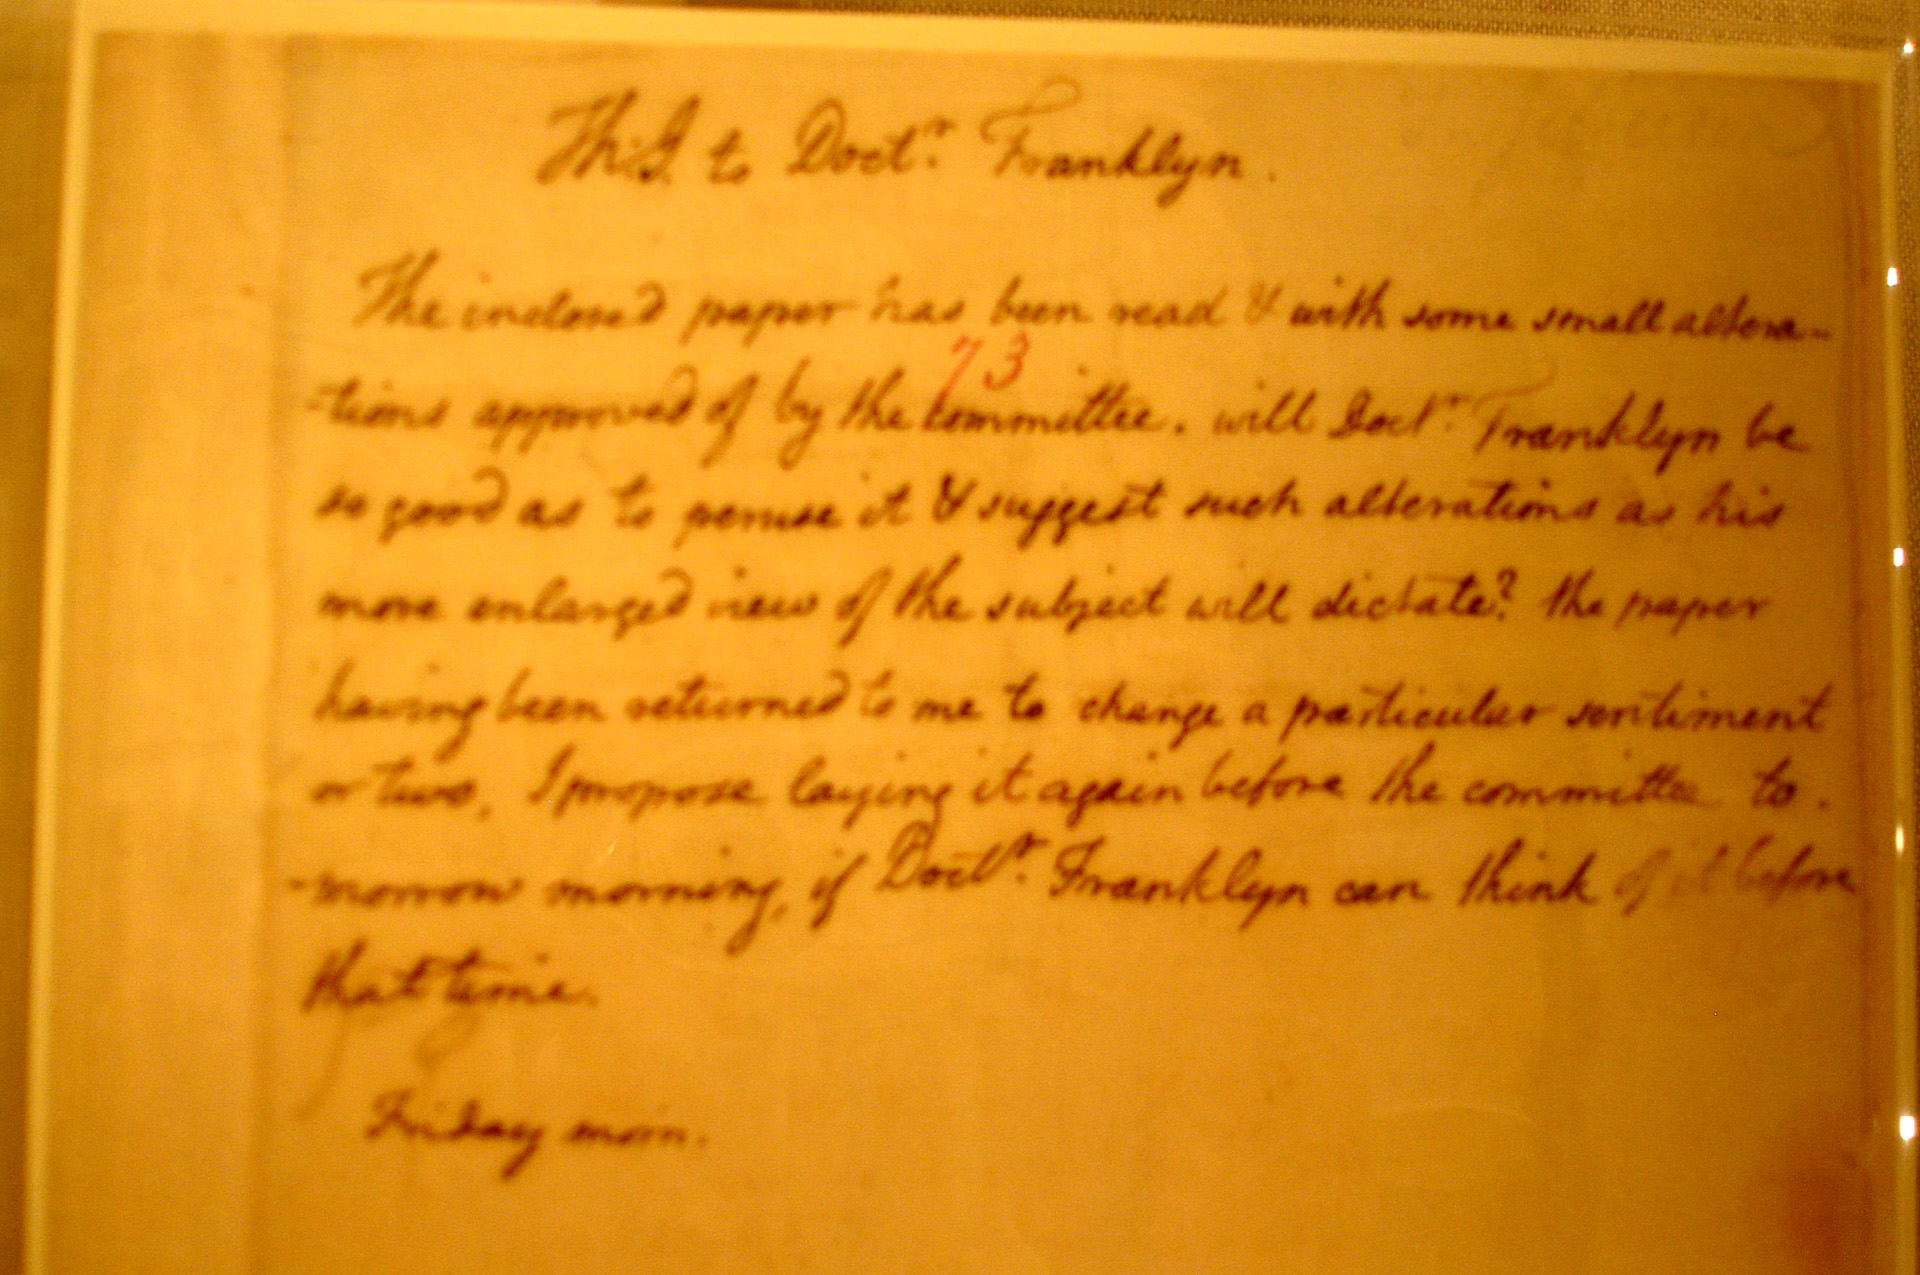 Th:J. to Doctr. Franklyn.
The inclosed paper has been read & with some small altera-
73
-tions approved of by the committee. will Doctr. Franklyn be
so good as to peruse it & suggest such alterations as his
more enlarged view of the subject will dictate? the paper
having been returned to me to change a particular sentiment
or two, I propose laying it again before the committee to-
-morrow morning, if Doctr. Franklyn can think of it before
that time.
Friday morn.